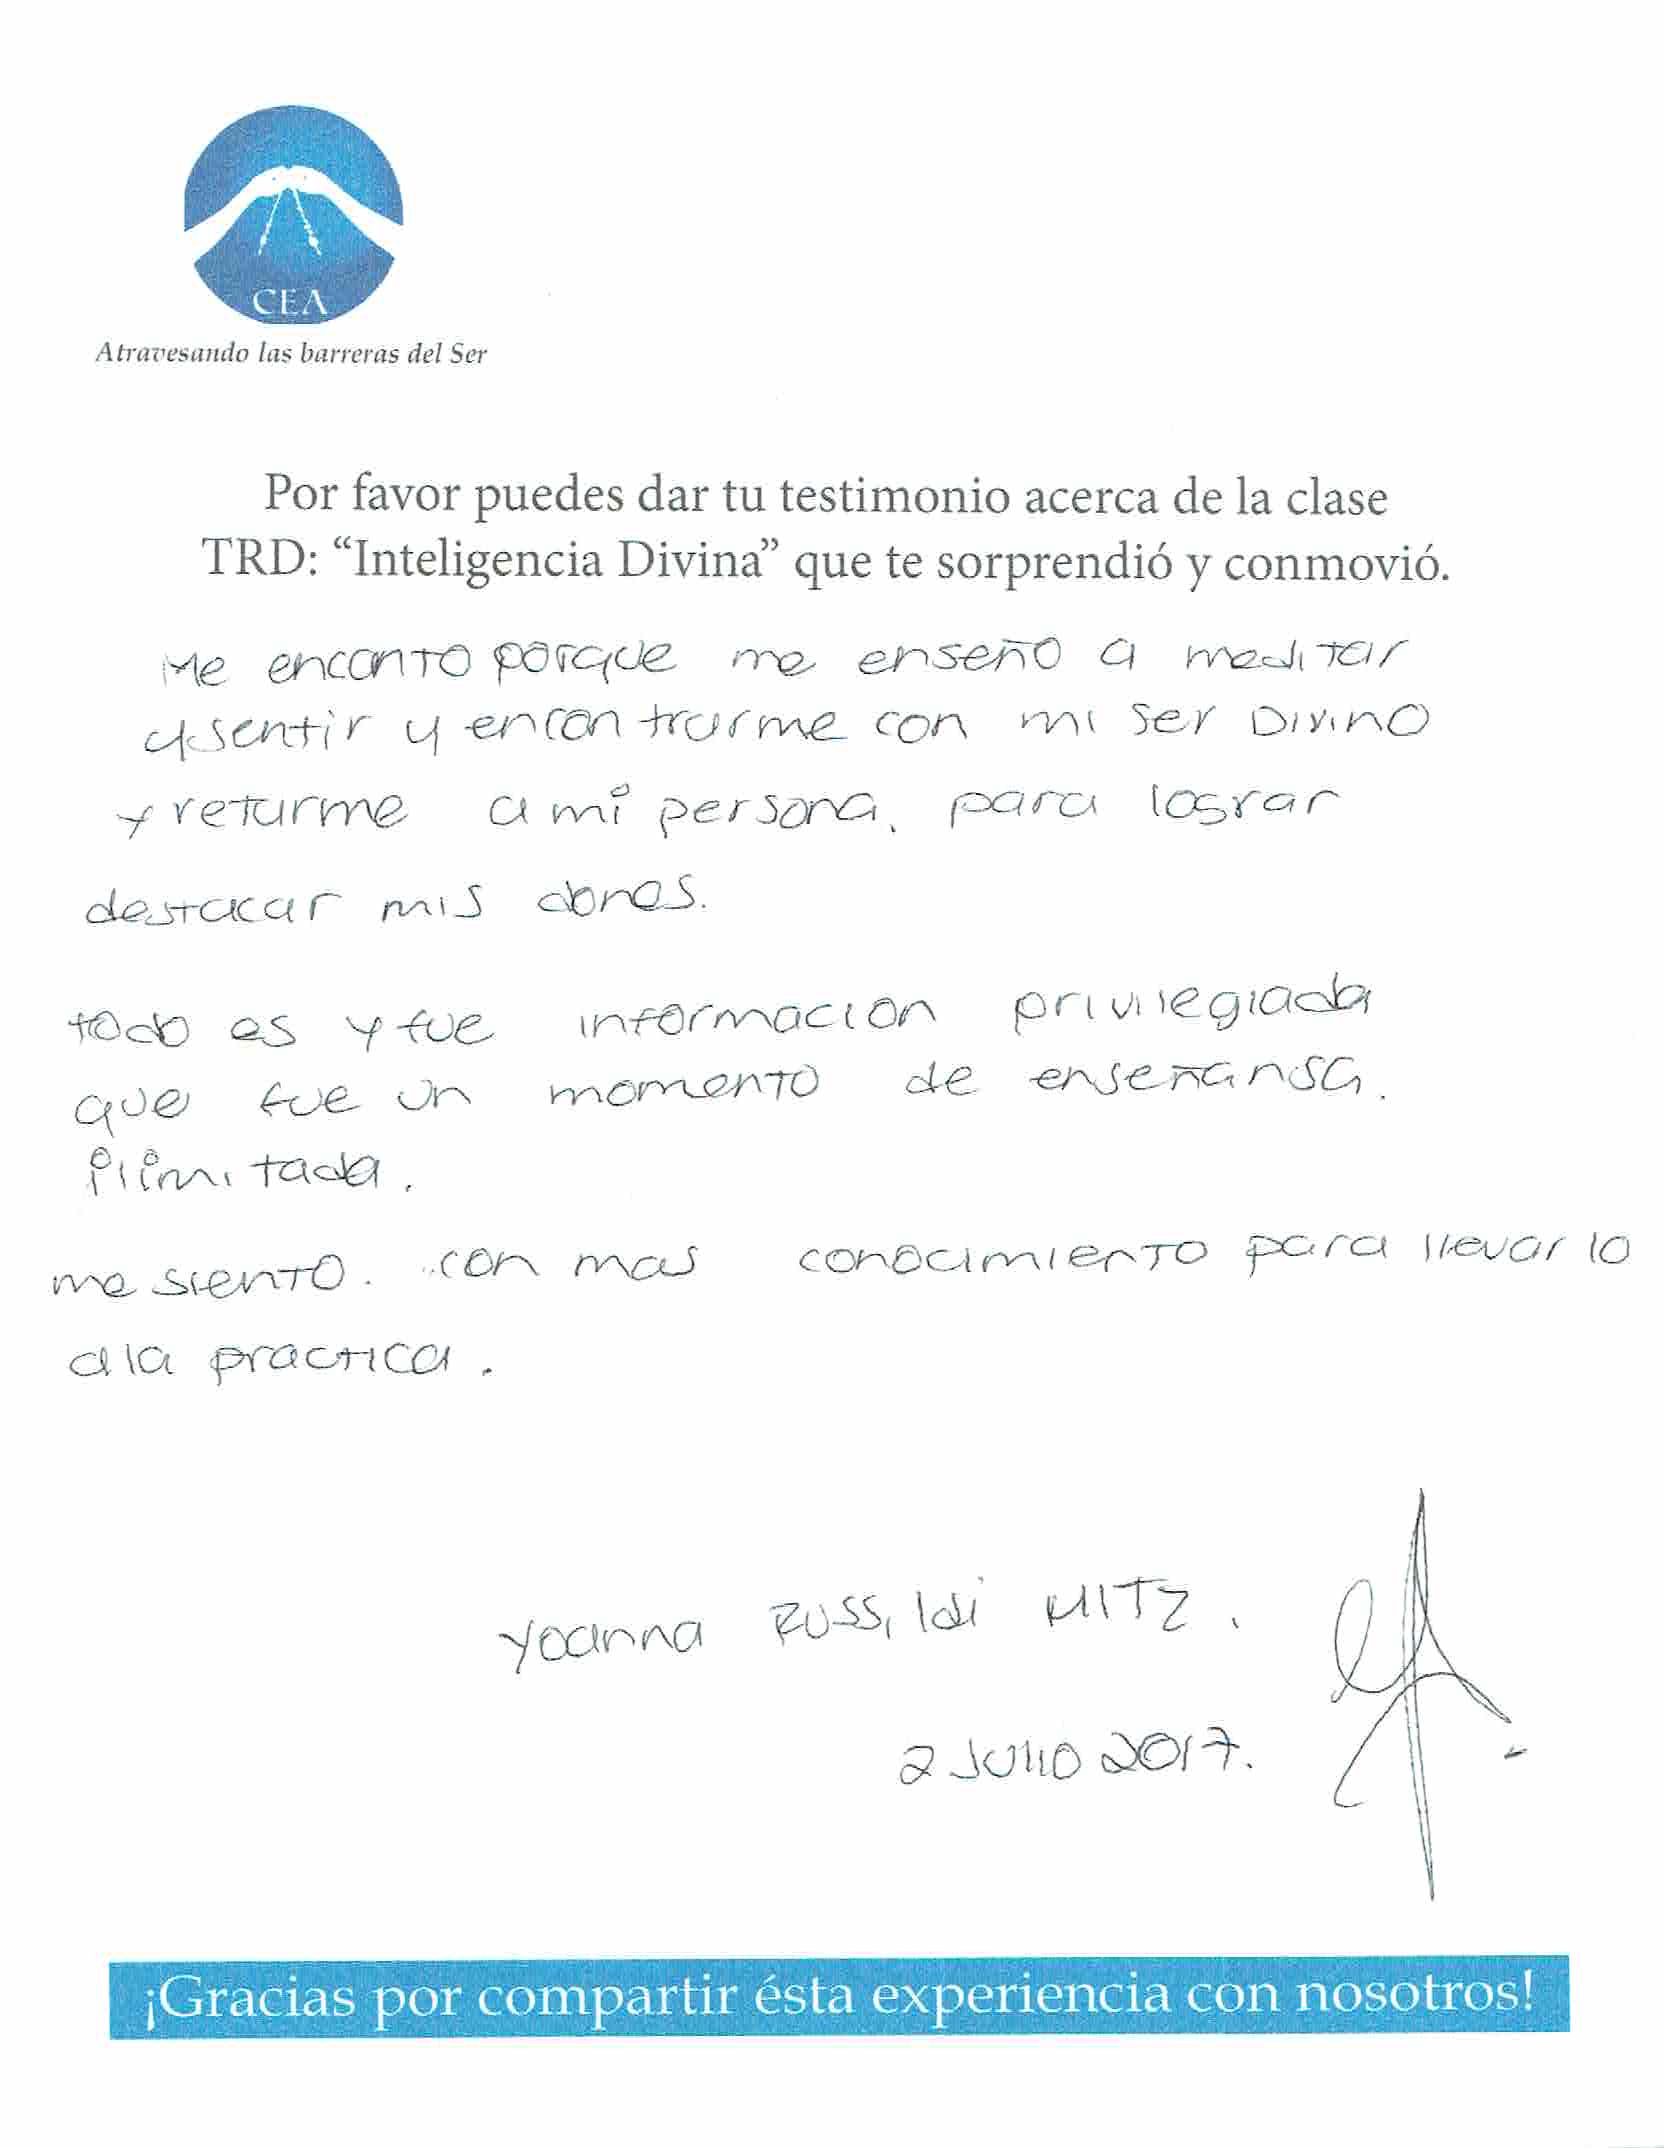 CEA
Atravesando las barreras del Ser
Por favor puedes dar tu testimonio acerca de la clase
TRD: “Inteligencia Divina” que te sorprendió y conmovió.
Me encanto porque me enseño a meditar
a sentir y encontrarme con mi ser Divino
y retarme a mi persona, para lograr
destacar mis dones.
todo es y fue informacion privilegiada
que fue un momento de enseñansa.
ilimitada.
me siento. con mas conocimiento para llevarlo
a la practica.
Yoanna Russildi MITZ.
2 Julio 2017.
¡Gracias por compartir ésta experiencia con nosotros!